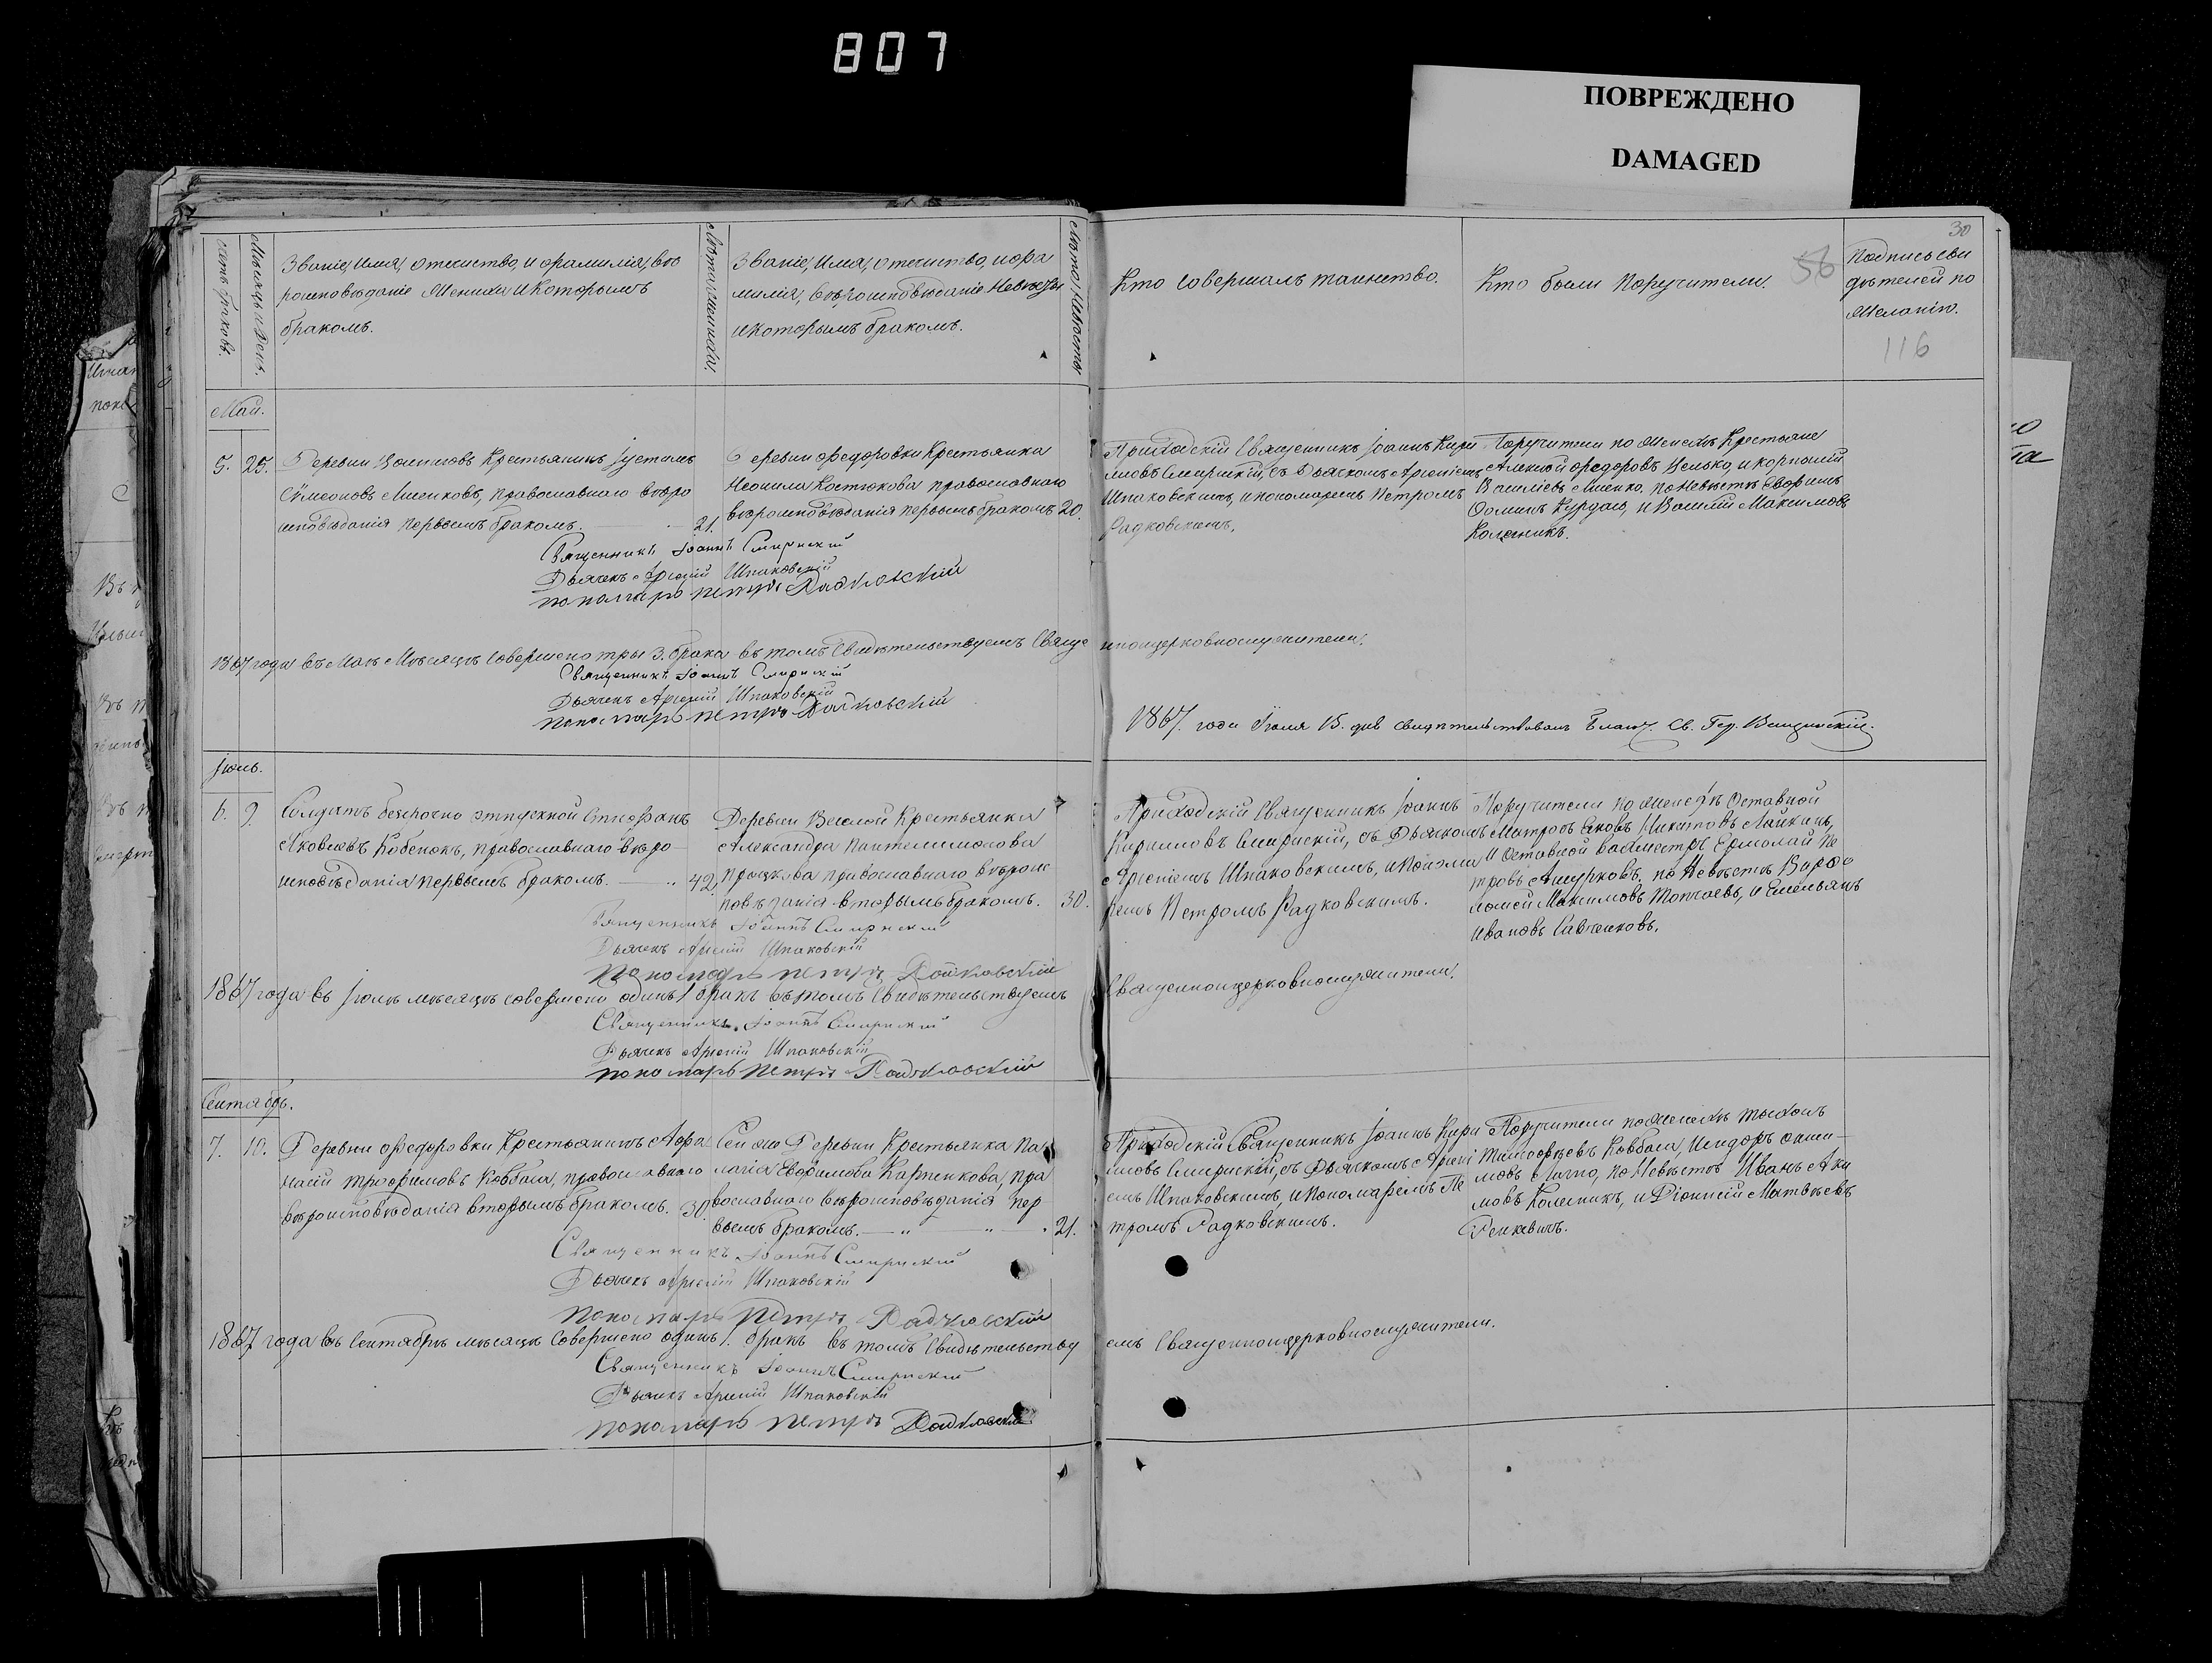 807
ПОВРЕЖДЕНО
DAMAGED
30
56
116
Счетъ браковъ.
Мѣсяцъ и день.
Званіе, имя, отечиство, и фамилія, вѣ
роисповѣданіе Жениха и Которымъ
бракомъ.
Лѣта жениха.
Званіе, имя, отечиство, и фа
милія, вѣроисповѣданіе Невѣсты
и которымъ бракомъ.
Лѣта Невѣсты
Кто совершалъ таинство.
Кто были Поручители.
Подпись сви
дѣтелей по
желанію.
Май.
5. 25.
Деревни Крестьянинъ Іустинъ
Сѵмеоновъ Лисенковъ, православнаго вѣро
исповѣданія первымъ бракомъ. 21.
Деревни Федоровки Крестьянка
Неонила Костюкова православнаго
вѣроисповѣданія первымъ бракомъ 20.
Приходскій Священникъ Іоаннъ Кири
ловъ Смирнскій, съ Дьячкомъ Арсеніемъ
Шпаковскимъ, и пономаремъ Петромъ
Радковскимъ.
Поручители по женихѣ Крестьяне
Алексій Федоровъ и Корнилій
Василіевъ Лисенко, по Невѣстѣ
Фоминъ и Василій Максимовъ
Колесникъ.
Священникъ Іоаннъ Смирнскій
Дьячекъ Арсеній Шпаковскій
пономарь петръ Радковскій
1867 года въ Маѣ Мѣсяцѣ совершено три 3. брака въ томъ Свидѣтельствуемъ Свяще нноцерковнослужители.
Священникъ Іоаннъ Смирнскій
Дьячекъ Арсеній Шпаковскій
пономарь петръ Радковскій
1867. года Іюля 15. дня свидѣтельствовалъ Благ. Св. Гр.
Іюнь.
6. 9.
Солдатъ безсрочно отпускной Стефанъ
Яковлевъ Кобенокъ, православнаго вѣро-
исповѣданія первымъ бракомъ. 42.
Деревни Веселой Крестьянка
Александра Пантелимонова
православнаго вѣроис
повѣданія вторымъ бракомъ. 30.
Приходскій Священникъ Іоаннъ
Кириловъ Смирнскій, съ Дьячкомъ
Арсеніемъ Шпаковскимъ, и Понома
ремъ Петромъ Радковскимъ.
Поручители по женихѣ Оставной
Матросъ Яковъ Никитовъ Лайкинъ,
и Оставной вахместръ Ермолай Пе
тровъ по Невѣстѣ Варѳо
ломей Максимовъ Топчаевъ, и Емельянъ
Ивановъ Савченковъ.
Священникъ Іоаннъ Смирнскій
Дьячекъ Арсеній Шпаковскій
Пономарь петръ Радковскій
1867 года въ Іюнѣ мѣсяцѣ совершено одинъ 1 бракъ въ томъ Свидѣтельствуемъ Священноцерковнослужители.
Священникъ Іоаннъ Смирнскій
Дьячекъ Арсеній Шпаковскій
пономарь петръ Радковскій
Сентябрь.
7. 10.
Деревни Федоровки Крестьянинъ Афа
насій Трофимовъ Ковбаса, православнаго
вѣроисповѣданія вторымъ бракомъ. 30.
Сей же Деревни Крестьянка Па
лагія Евфимова Карпенкова, пра
вославнаго вѣроисповѣданія пер
вымъ бракомъ. 21.
Приходскій Священникъ Іоаннъ Кири
ловъ Смирнскій, съ Дьячкомъ Арсені
емъ Шпаковскимъ, и Пономаремъ Пе
тромъ Радковскимъ.
Поручители по женихѣ
Тимофѣевъ Ковбаса, Исидоръ
мовъ по Невѣстѣ Иванъ Аки
мовъ Колесникъ, и Діонисій Матвѣевъ
Ренкевичъ.
Священникъ Іоаннъ Смирнскій
Дьячекъ Арсеній Шпаковскій
пономарь Петръ Радковскій
1867 года въ Сентябрѣ мѣсяцѣ совершено одинъ 1. бракъ въ томъ Свидѣтельству емъ Священноцерковнослужители.
Священникъ Іоаннъ Смирнскій
Дьячекъ Арсеній Шпаковскій
пономарь петръ Радковскій